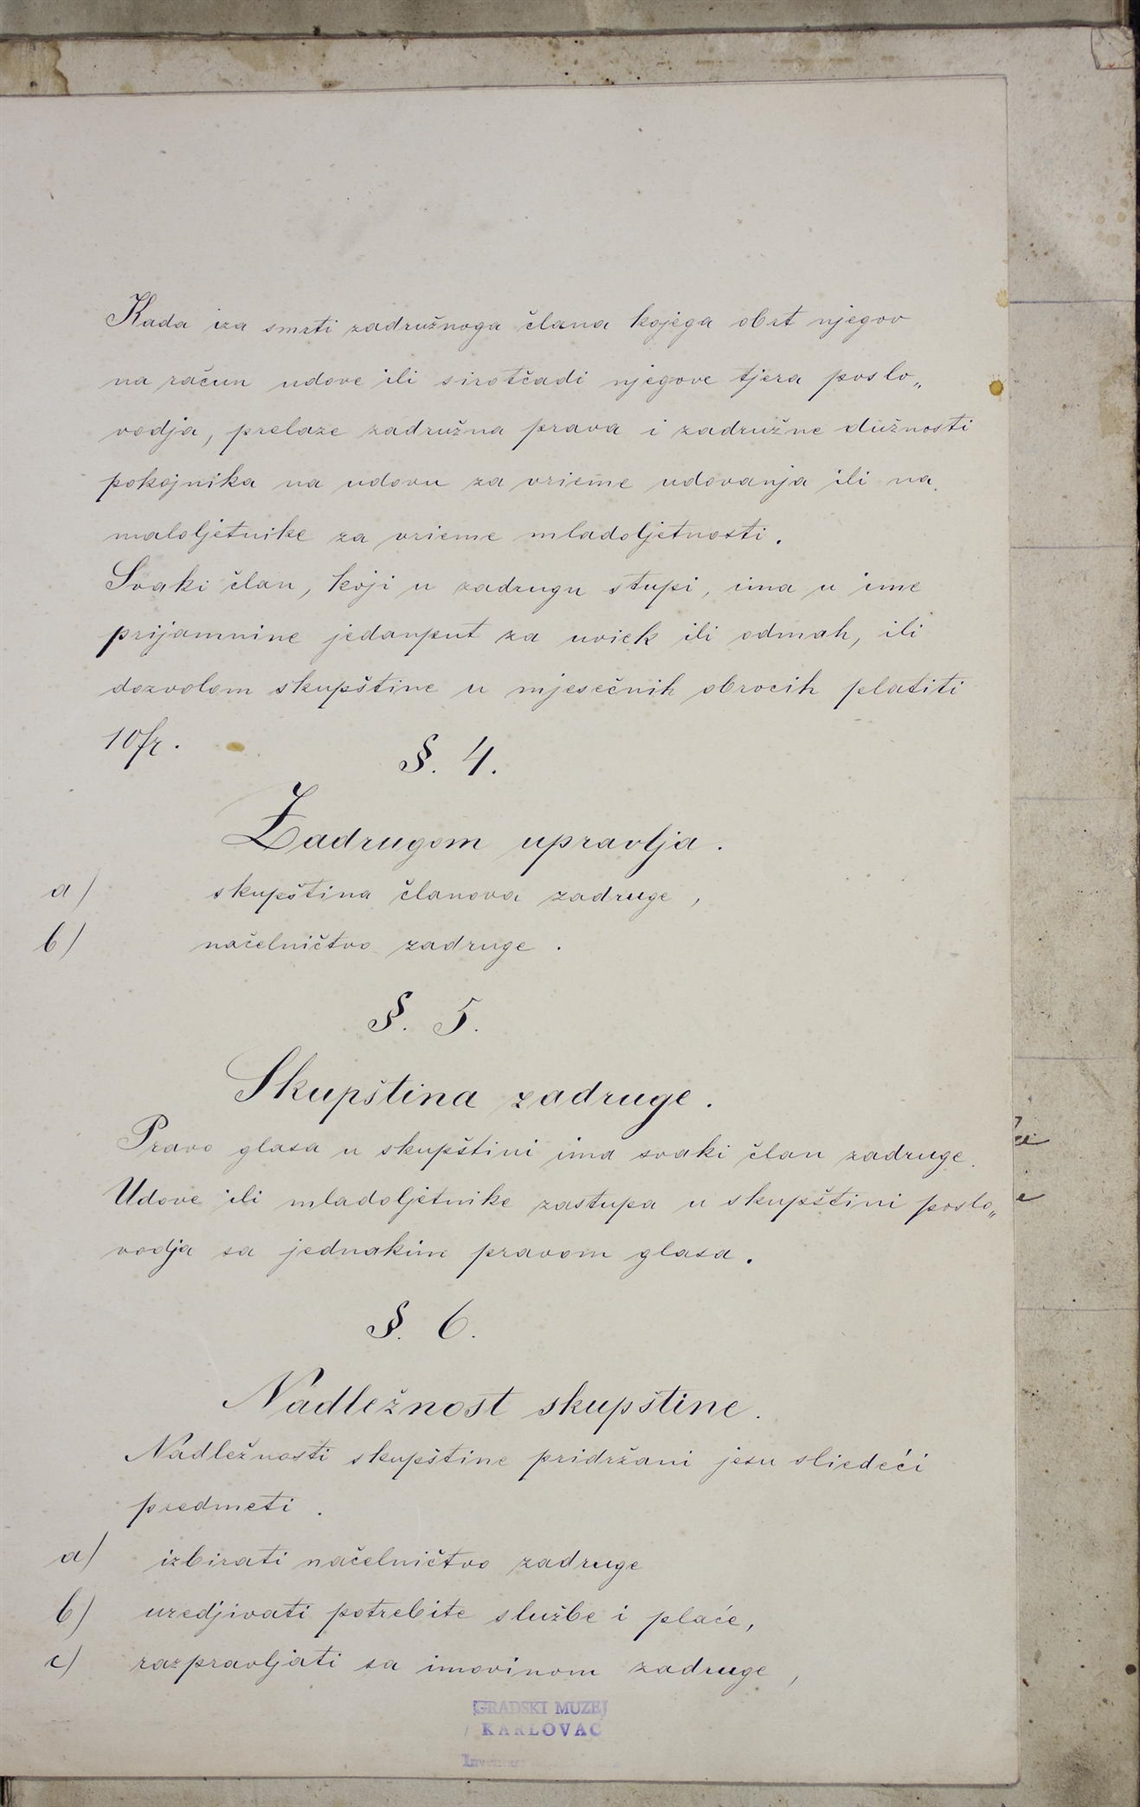 Kada iza smrti zadružnoga člana kojega obrt njegov
na račun udove ili sirotčadi njegove tjera poslo„
vodja, prelaze zadružna prava i zadružne dužnosti
pokojnika na udovu za vrieme udovanja ili na
maloljetnike za vrieme mladoljetnosti.
Svaki član, koji u zadrugu stupi, ima u ime
prijamnine jedanput za uviek ili odmah, ili
dozvolom skupštine u mjesečnih obrocih platiti
10 fr.
§. 4.
Zadrugom upravlja.
a) skupština članova zadruge,
b) načelničtvo zadruge.
§. 5.
Skupština zadruge.
Pravo glasa u skupštini ima svaki član zadruge.
Udove ili mladoljetnike zastupa u skupštini poslo„
vodja sa jednakim pravom glasa.
§. 6.
Nadležnost skupštine.
Nadležnosti skupštine pridržani jesu sliedeći
predmeti.
a) izbirati načelničtvo zadruge
b) uredjivati potrebite službe i plaće,
c) razpravljati sa imovinom zadruge,
GRADSKI MUZEJ
KARLOVAC